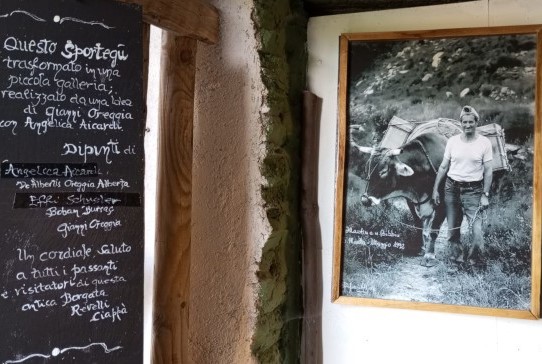 Questo Sportegù
trasformato in una
piccola galleria,
realizzato da una idea
di Gianni Oreggia
con Angelica Aicardi.
Dipinti di
Angelica Aicardi
De Albertis Oreggia Alberta
Effi
Boban
Gianni Oreggia
Un cordiale saluto
a tutti i passanti
e visitatori di questa
antica Borgata
Revelli
Ciappà